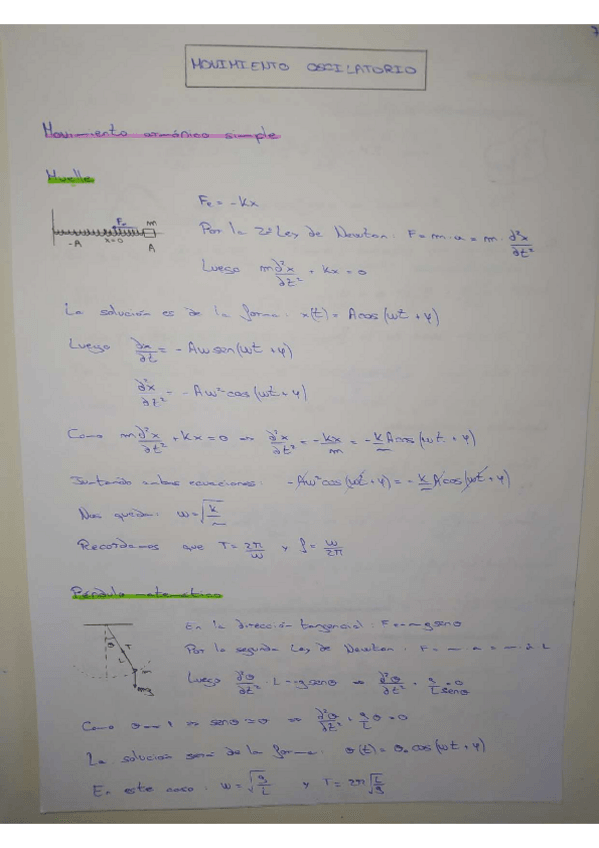 7
MOVIMIENTO OSCILATORIO
Movimiento armónico simple
Muelle
Fe = -Kx
Fe m
-A x=0 A
Por la 2ª Ley de Newton: F = m·a = m·∂²x/∂t²
Luego m∂²x/∂t² + Kx = 0
La solución es de la forma: x(t) = Acos(ωt + φ)
Luego ∂x/∂t = -Aωsen(ωt + φ)
∂²x/∂t² = -Aω²cos(ωt + φ)
Como m∂²x/∂t² + Kx = 0 ⇒ ∂²x/∂t² = -kx/m = -k/m Acos(ωt + φ)
Juntando ambas ecuaciones: -Aω²cos(ωt + φ) = -k/m Acos(ωt + φ)
Nos queda: ω = √k/m
Recordamos que T = 2π/ω y f = ω/2π
Péndulo matemático
θ T L m mg
En la dirección tangencial: F = -mgsenθ
Por la segunda Ley de Newton: F = m·a = m·α·L
Luego ∂²θ/∂t²·L = -gsenθ ⇒ ∂²θ/∂t² + g/L senθ = 0
Como ⇒ senθ ≈ θ ⇒ ∂²θ/∂t² + g/L θ = 0
La solución será de la forma: θ(t) = θ₀cos(ωt + φ)
En este caso: ω = √g/L y T = 2π√L/g